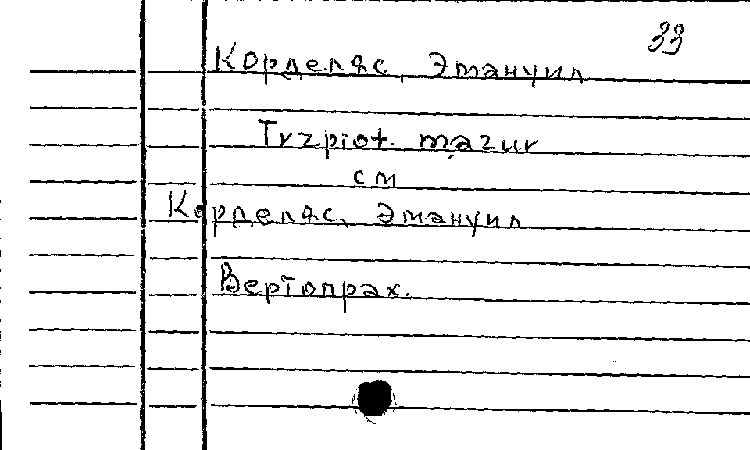 33
Корделяс, Эмануил
Trzpiot. mazur
см
Корделяс, Эмануил
Вертопрах.